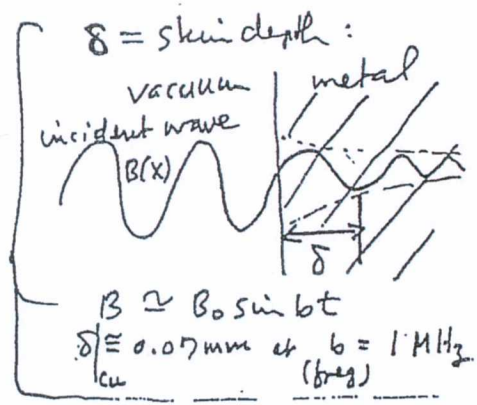 δ = skin depth :
vacuum
metal
incident wave
B(x)
δ
B ≃ B₀ sin bt
δ|cu ≅ 0.07 mm at b = 1 MHz
(freq)